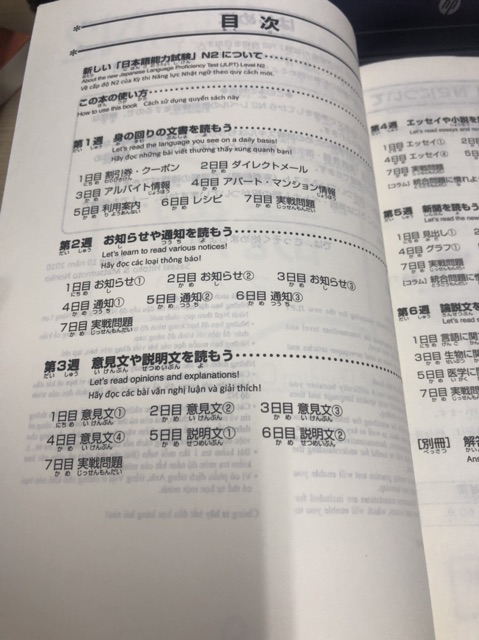 目 次
新しい「日本語能力試験」N2 について
About the new Japanese Language Proficiency Test (JLPT) Level N2
Về cấp độ N2 của Kỳ thi Năng lực Nhật ngữ theo quy cách mới.
この本の使い方
How to use this book Cách sử dụng quyển sách này
第1週 身の回りの文書を読もう
Let's read the language you see on a daily basis!
Hãy đọc những bài viết thường thấy xung quanh bạn!
1日目 割引券・クーポン 2日目 ダイレクトメール
3日目 アルバイト情報 4日目 アパート・マンション情報
5日目 利用案内 6日目 レシピ 7日目 実戦問題
第2週 お知らせや通知を読もう
Let's learn to read various notices!
Hãy đọc các loại thông báo!
1日目 お知らせ① 2日目 お知らせ② 3日目 お知らせ③
4日目 通知① 5日目 通知② 6日目 通知③
7日目 実戦問題
第3週 意見文や説明文を読もう
Let's read opinions and explanations!
Hãy đọc các bài văn nghị luận và giải thích!
1日目 意見文① 2日目 意見文② 3日目 意見文③
4日目 意見文④ 5日目 説明文① 6日目 説明文②
7日目 実戦問題
第4週 エッセイや小説を
Let's read essays and
1日目 エッセイ①
4日目 エッセイ④
7日目 実戦問題
[コラム] 統合問題に慣れよ
第5週 新聞を読もう
Let's read the new
1日目 見出し①
4日目 グラフ①
7日目 実戦問題
[コラム] 統合問題に慣
第6週 論説文を
Let's read
1日目 言語に関
3日目 生物に関
5日目 医学に関
7日目 実戦問題
[別冊] 解答